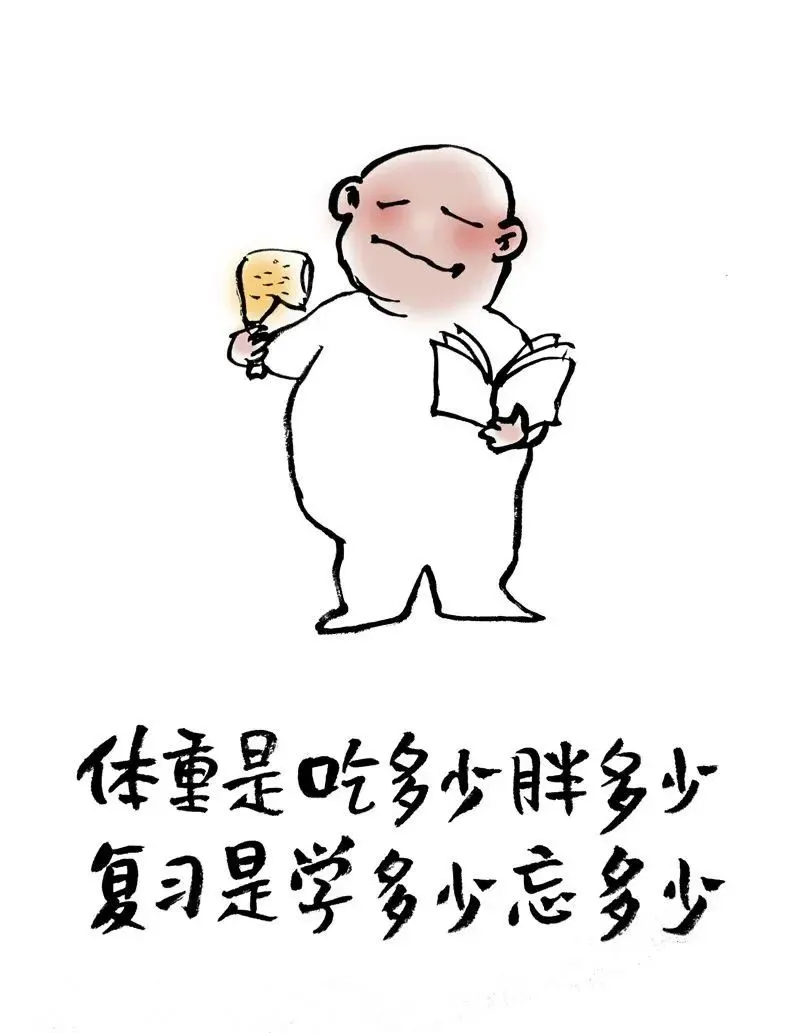 体重是吃多少胖多少
复习是学多少忘多少